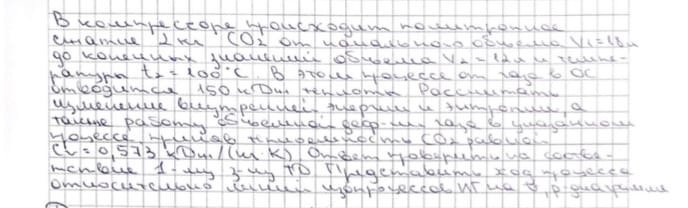 В компрессоре происходит политропное
сжатие 2 кг CO2 от начального объема V1=18 л
до конечных значений объема V2=12 л и темпе-
ратуры t2=100°C. В этом процессе от газа в ОС
отводится 150 кДж теплоты. Рассчитать
изменение внутренней энергии и энтропии, а
также работу объемной деф-ии газа в указанном
процессе, приняв теплоемкость CO2 равной
Cv=0,573 кДж/(кг К). Ответ проверить на соотве-
тствие 1-му з-ну ТД. Представить ход процесса
относительно линий изопроцессов ИГ на v,p-диаграмме